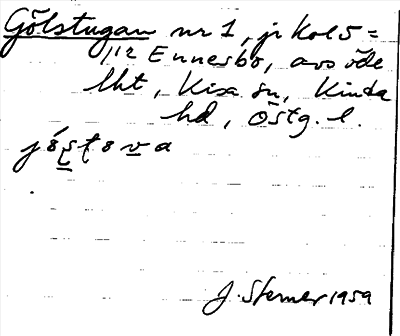 Gölstugan nr 1, jr Kol 5=
112 Ennesbo, avs öde
lht, Kisa sn, Kinda
hd, Östg. l.
J. Sterner 1959